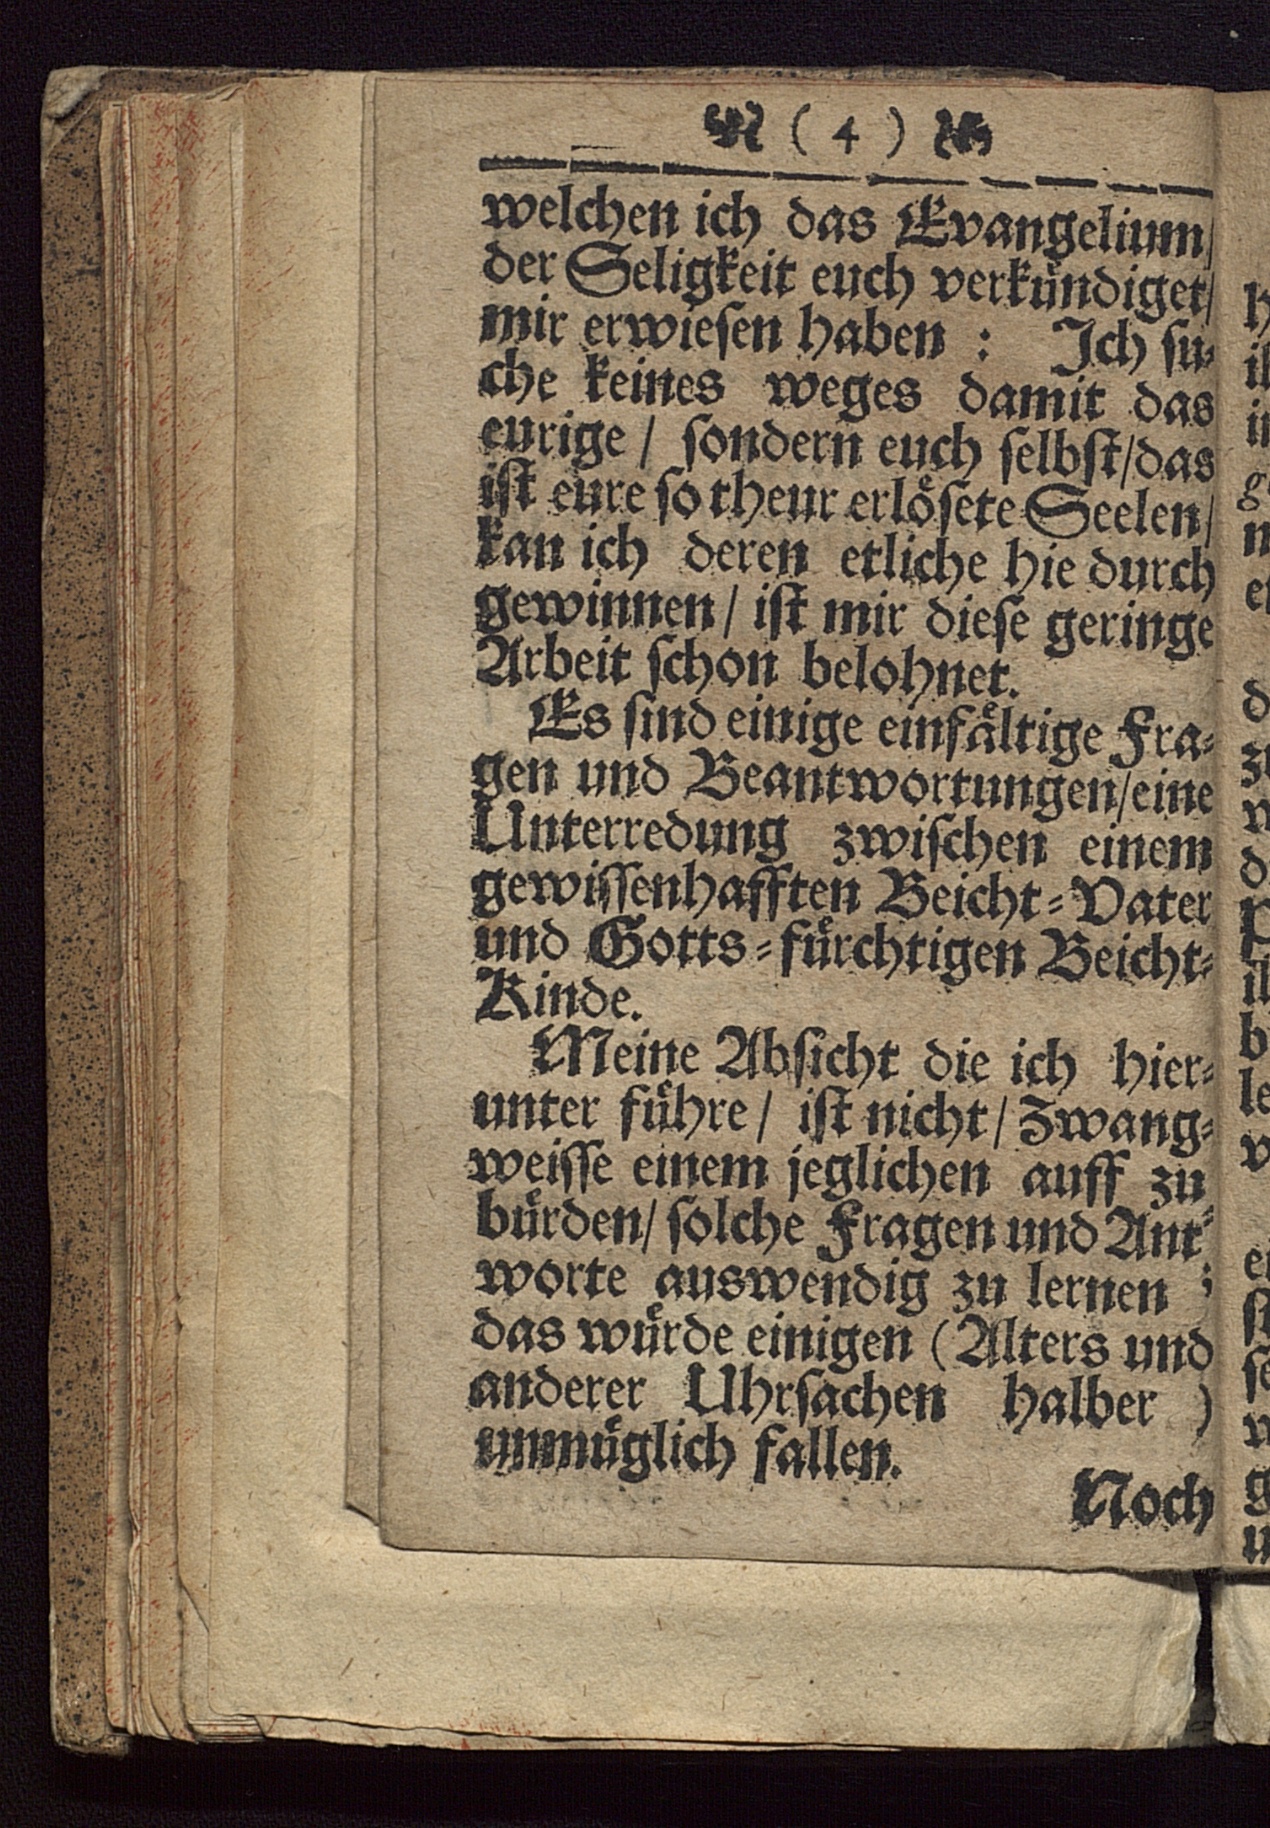 ( 4 )
welchen ich das Evangelium/
der Seligkeit euch verkuͤndiget/
mir erwieſen haben : Ich ſu⸗
che keines weges damit das
eurige / ſondern euch ſelbſt/das
iſt eure ſo theur erloͤſete Seelen/
kan ich deren etliche hie durch
gewinnen / iſt mir dieſe geringe
Arbeit ſchon belohnet.
Es ſind einige einfaͤltige Fra⸗
gen und Beantwortungen/eine
Unterredung zwiſchen einem
gewiſſenhafften Beicht⸗Vater
und Gotts⸗fuͤrchtigen Beicht⸗
Kinde.
Meine Abſicht die ich hier⸗
unter fuͤhre / iſt nicht / Zwang⸗
weiſſe einem jeglichen auff zu
buͤrden/ ſolche Fragen und Ant⸗
worte auswendig zu lernen ;
das wuͤrde einigen (Alters und
anderer Uhrſachen halber )
unmuͤglich fallen.
Noch